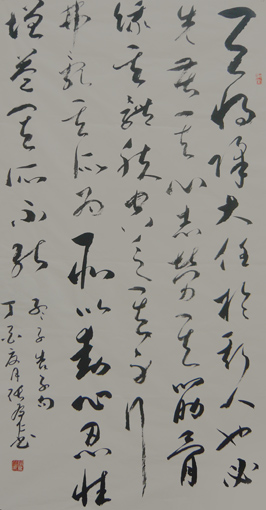 天将降大任於斯人也必
先苦其心志劳其筋骨
餓其體膚空乏其身行
拂亂其所为所以動心忍性
增益其所不能
孟子告子句